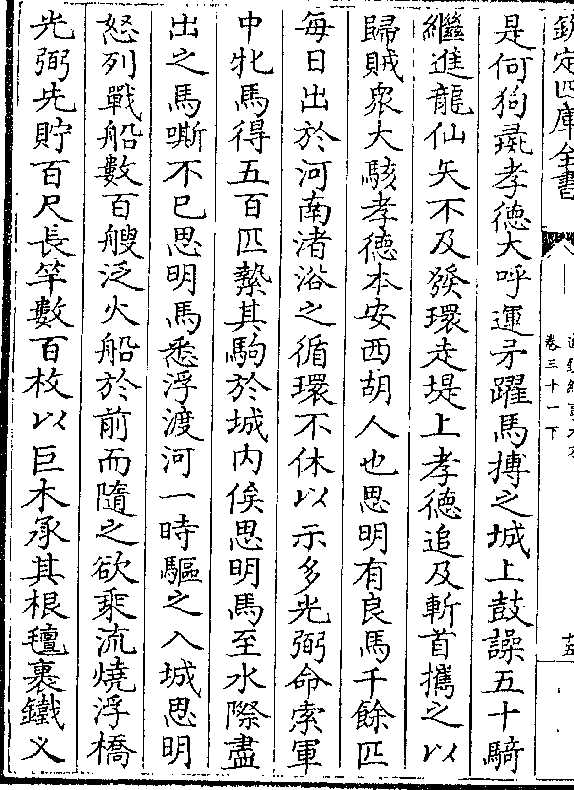 欽定四庫全書
卷三十一下
是何狗彘孝德大呼運矛躍馬搏之城上鼓譟五十騎
繼進龍仙矢不及發環走堤上孝德追及斬首攜之以
歸賊衆大駭孝德本安西胡人也思明有良馬千餘匹
每日出於河南渚浴之循環不休以示多光弼命索軍
中牝馬得五百匹縶其駒於城内俟思明馬至水際盡
出之馬嘶不已思明馬悉浮渡河一時驅之入城思明
怒列戰船數百艘泛火船於前而隨之欲乘流燒浮橋
光弼先貯百尺長竿數百枚以巨木承其根氊裹鐵义